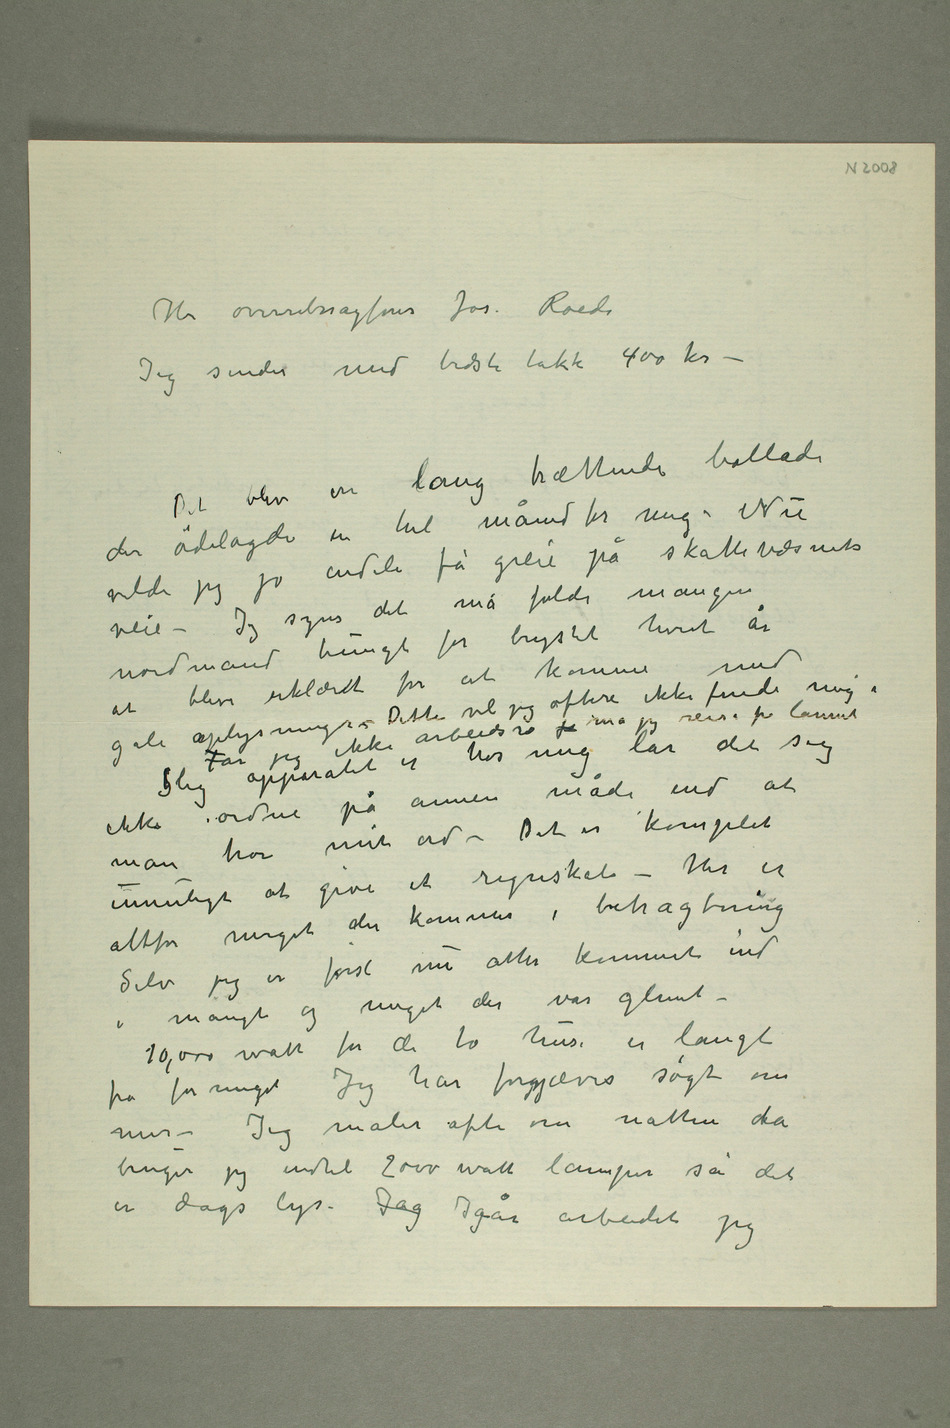 N 2008
Hr overretssagfører Jos. Roede
Jeg sender med bedste takk 400 kr –
Det blev en lang trættende ballade
der ödelagde en hel måned for mig. Nu
vilde jeg jo endeli få greie på skattevæsnets
veie – Jeg synes det må falde mangen
nordmand tungt for brystet hvert år
at blive erklært for at komme med
gale oplysninger – Dette vil jeg oftere ikke finde mig i
Får jeg ikke arbeidsro må jeg reise fra landet
Slig apparatet er hos mig lar det sig
ikke ordne på annen måde end at
man tror mit ord – Det er komplet
umuligt at give et regnskab – Her er
altfor meget der kommer i betragtning
Selv jeg er først nu atter kommet ind
i mangt og meget der var glemt –
10,000 watt for de to huse er langt
fra for meget Jeg har forgjæves søgt om
mer – Jeg maler ofte om natten da
bruger jeg indtil 2000 watt lamper så det
er dags lys. Jag Igår arbeidet jeg